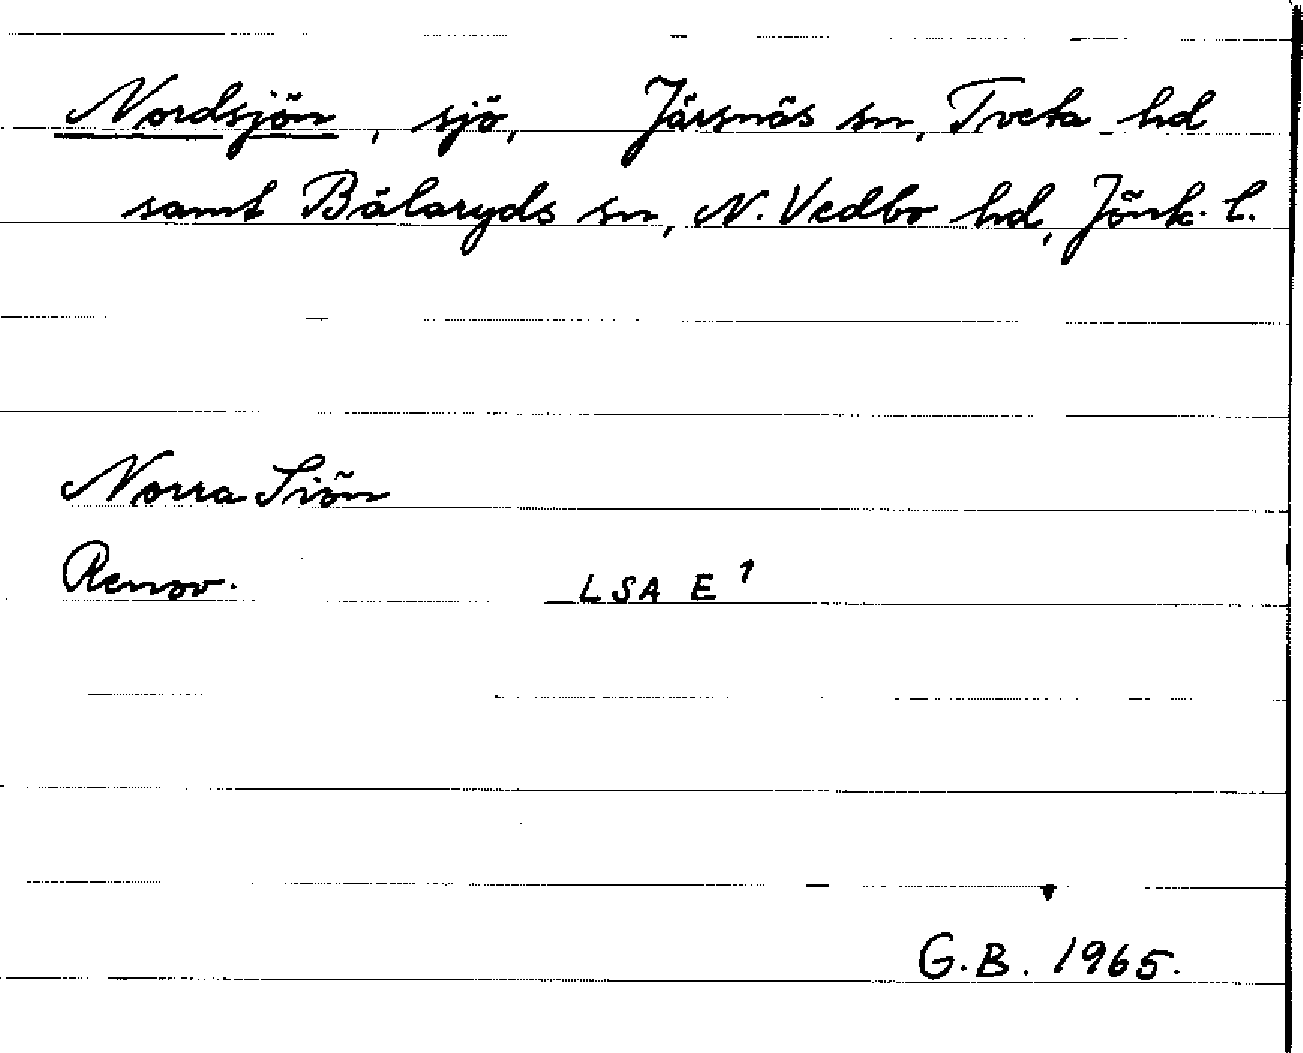 Nordsjön, sjö, Järsnäs sn, Tveta hd
samt Bälaryds sn, N. Vedbo hd, Jönk. l.
Norra Siön
Renov. LSA E 1
G.B. 1965.